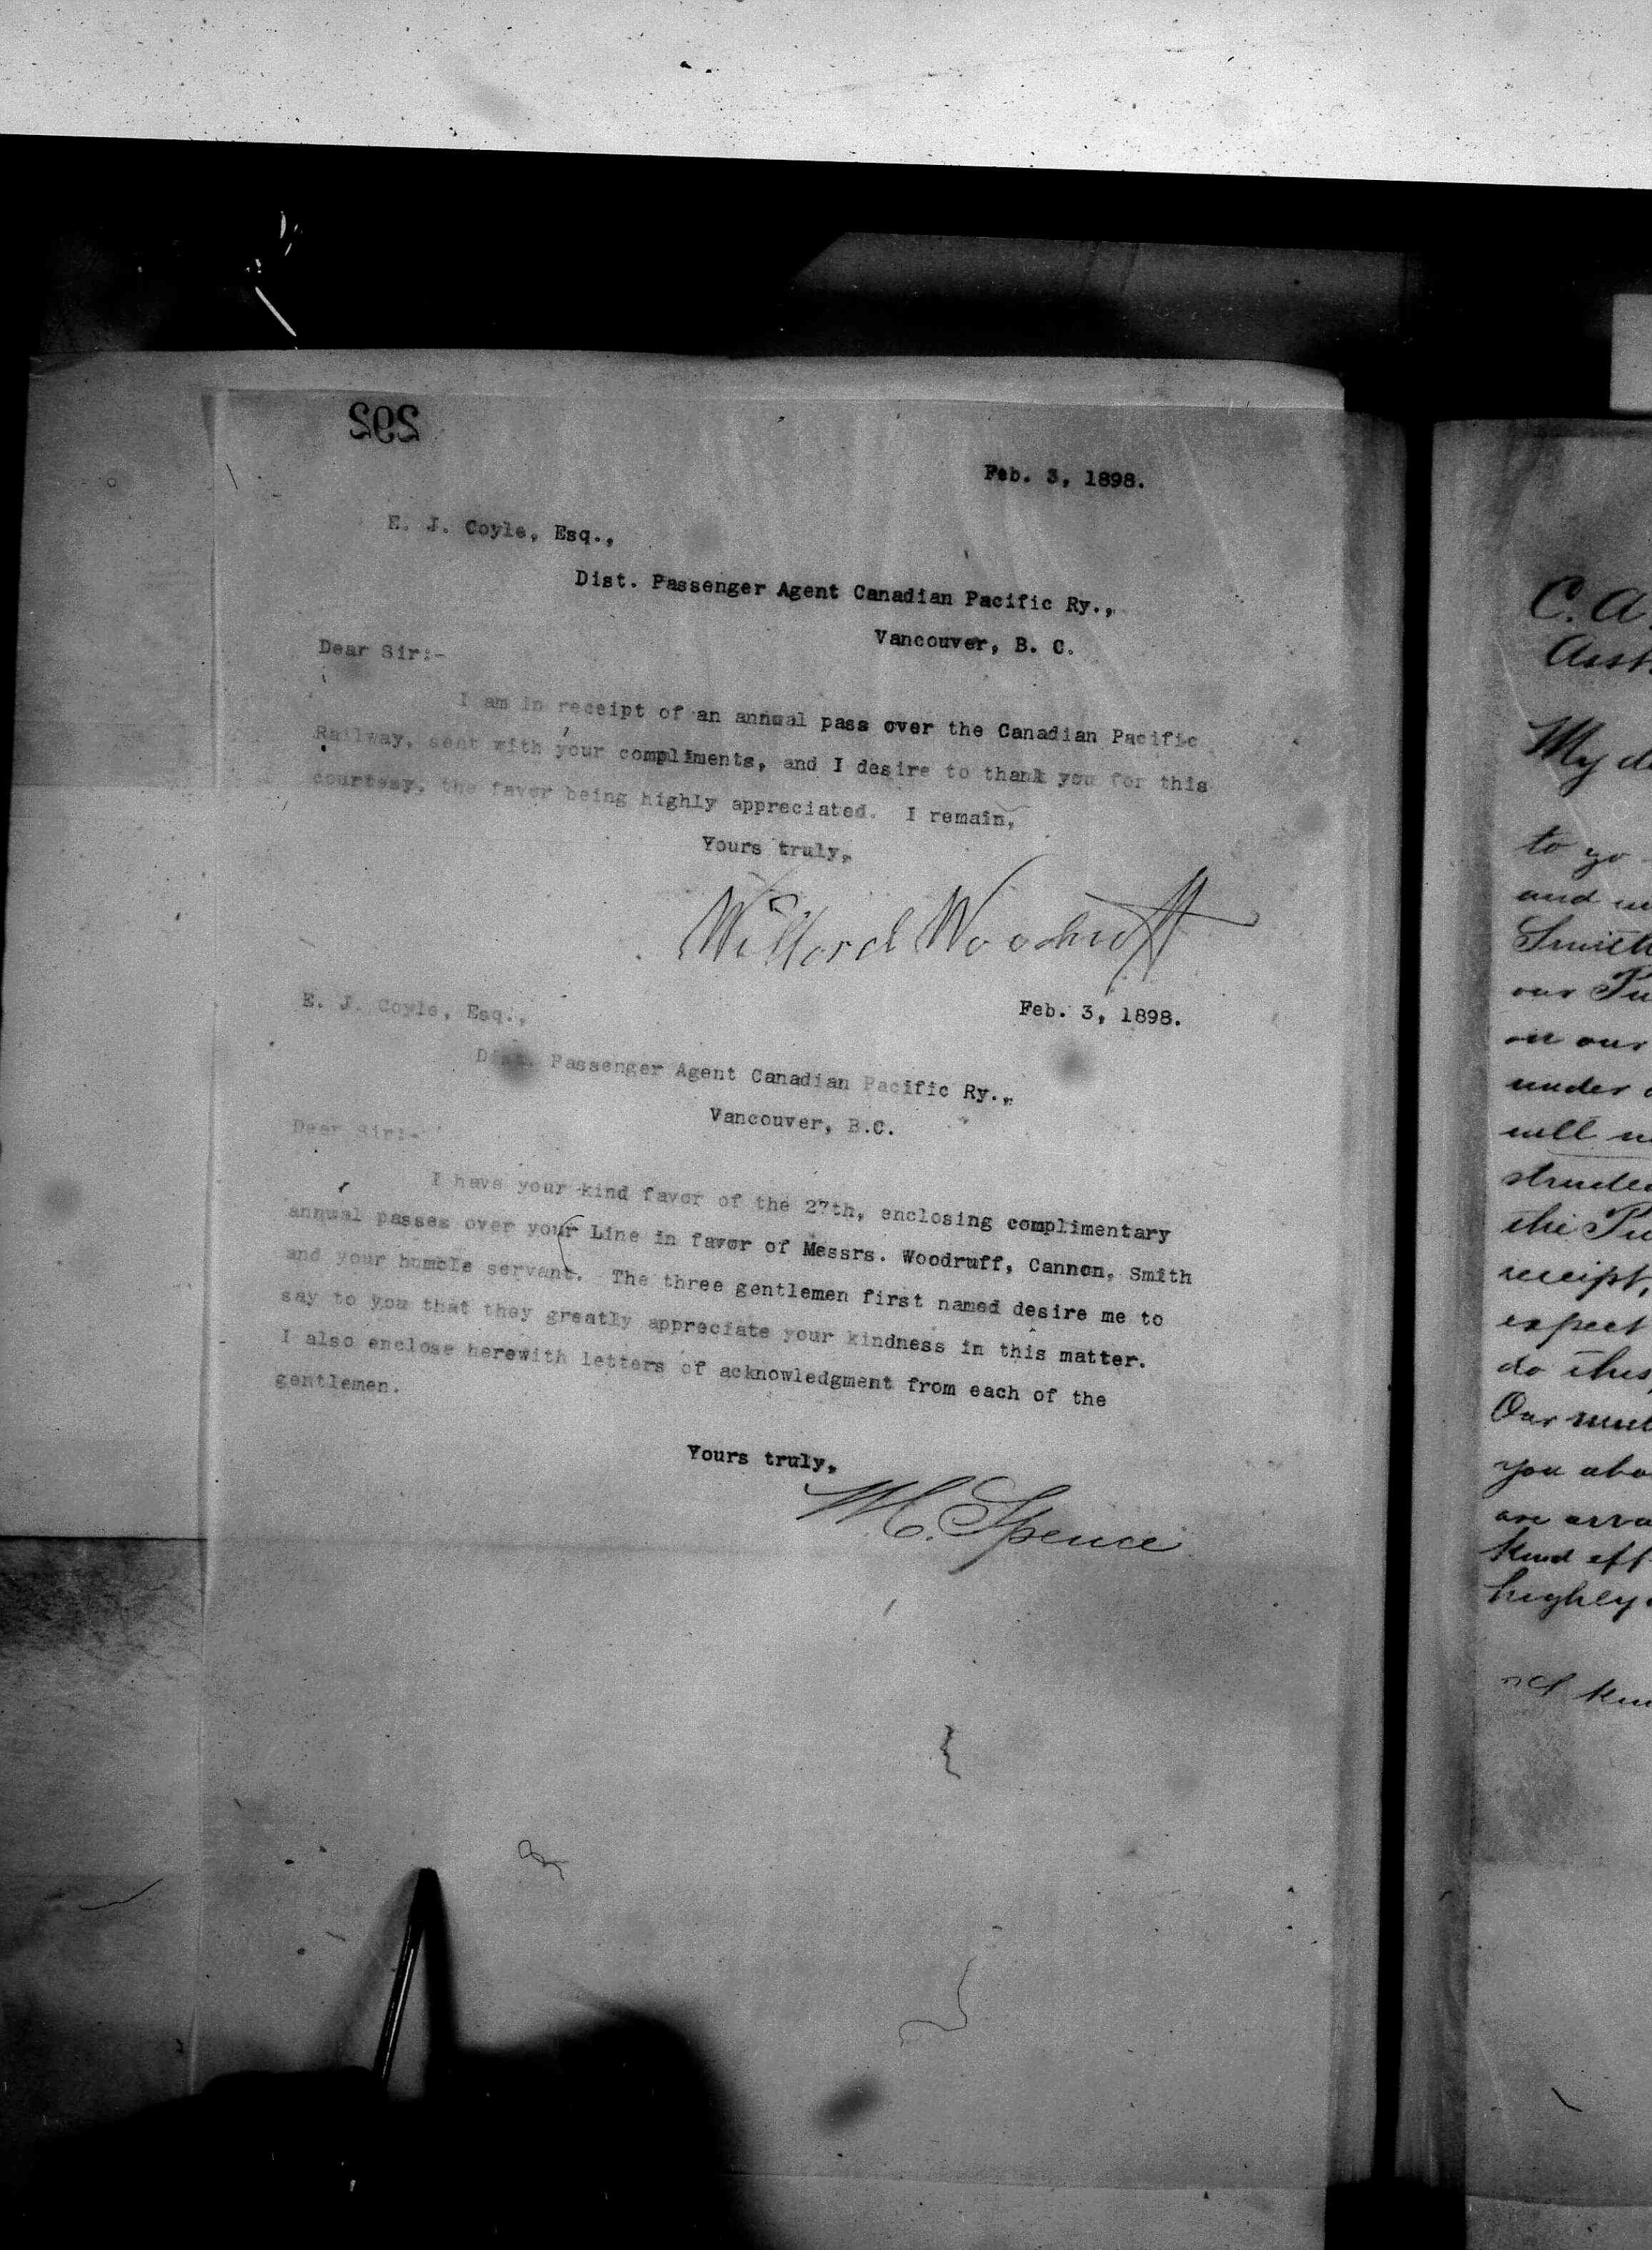 292
Feb. 3, 1898.
E. J. Coyle, Esq.,
Dist. Passenger Agent Canadian Pacific Ry.,
Vancouver, B. C.
Dear Sir:-
I am in receipt of an annual pass over the Canadian Pacific
Railway, sent with your compliments, and I desire to thank you for this
courtesy, the favor being highly appreciated. I remain,
Yours truly,
Wilford Woodruff
Feb. 3, 1898.
E. J. Coyle, Esq.,
Dist. Passenger Agent Canadian Pacific Ry.,
Vancouver, B.C.
Dear Sir:-
I have your kind favor of the 27th, enclosing complimentary
annual passes over your Line in favor of Messrs. Woodruff, Cannon, Smith
and your humble servant. The three gentlemen first named desire me to
say to you that they greatly appreciate your kindness in this matter.
I also enclose herewith letters of acknowledgment from each of the
gentlemen.
Yours truly,
M. Spence
C. A.
My
to go
and
Smith
our
on our
under
will
the
receipt,
expect
do this
Our
you
are
kind
highly